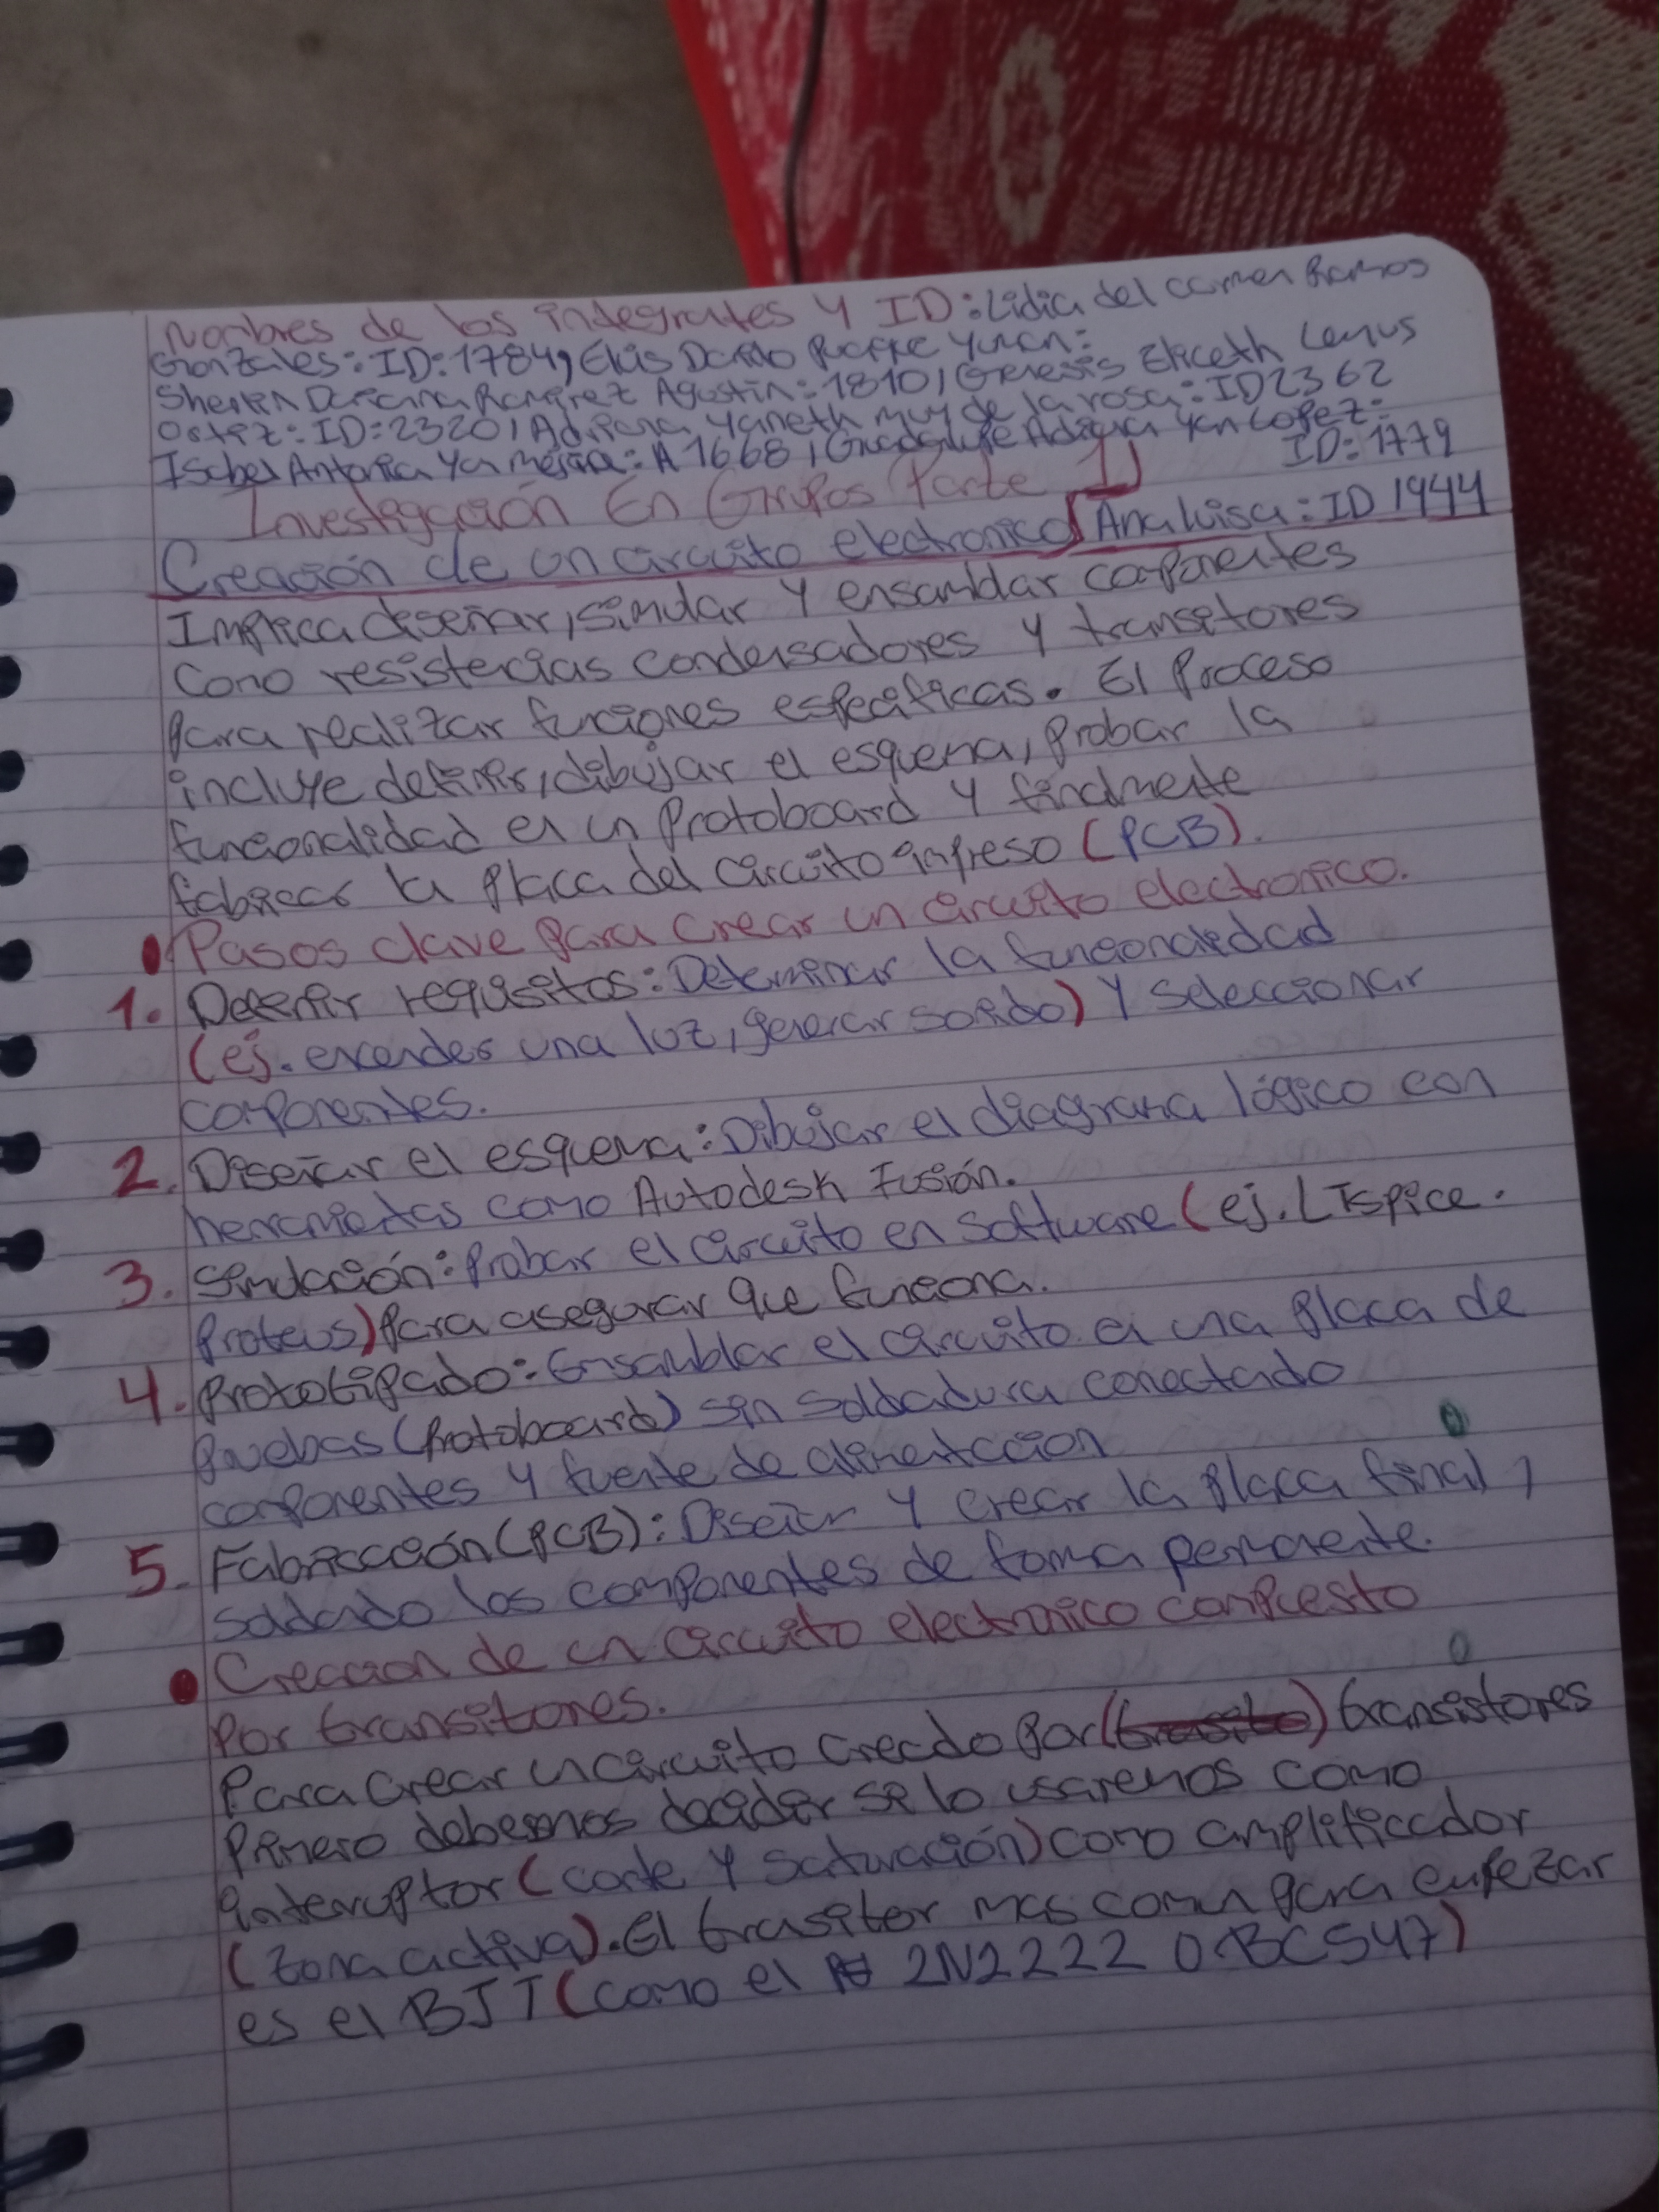 Nombres de los integrates y ID: Lidia del carmen Ramos
Gonzales: ID: 1784, Elias Yuman:
Sherlyn Dariana Ramirez Agustin: 1810, Genesis Elizeth Lemus
Ostiz: ID: 2320, Adriana Yaneth Muy de la rosa: ID 2362
Isabel Antonia Ya mejia: A 1668, Guadalupe Adriana Yan Lopez:
ID: 1779
Investigación En Grupos Parte 1
Creación de un circuito electronico Ana Luisa: ID 1944
Implica diseñar, simular y ensamblar componentes
Como resistencias condensadores y transitores
para realizar funciones especificas. El Proceso
incluye definir, dibujar el esquema, probar la
funcionalidad en un Protoboard y finalmente
fabricar la placa del circuito impreso (PCB).
Pasos clave para crear un circuito electronico.
1. Definir requisitos: Determinar la funcionalidad
(ej. encender una luz, generar sonido) y seleccionar
componentes.
2. Diseñar el esquema: Dibujar el diagrama lógico con
herramientas como Autodesk Fusión.
3. Simulación: Probar el circuito en software (ej. LTspice.
Proteus) para asegurar que funciona.
4. Prototipado: Ensamblar el circuito en una placa de
pruebas (Protoboard) sin soldadura conectado
componentes y fuente de alimentacion
5. Fabricación (PCB): Diseñar y crear la placa final,
soldando los componentes de forma permanente.
Creacion de un circuito electronico compuesto
por transitores.
Para crear un circuito creado por (transito) transistores
Primero debemos decidir si lo usaremos como
interruptor (corte y saturación) como amplificador
(zona activa). El trasitor mas comun para empezar
es el BJT (como el 2N2222 o BC547)